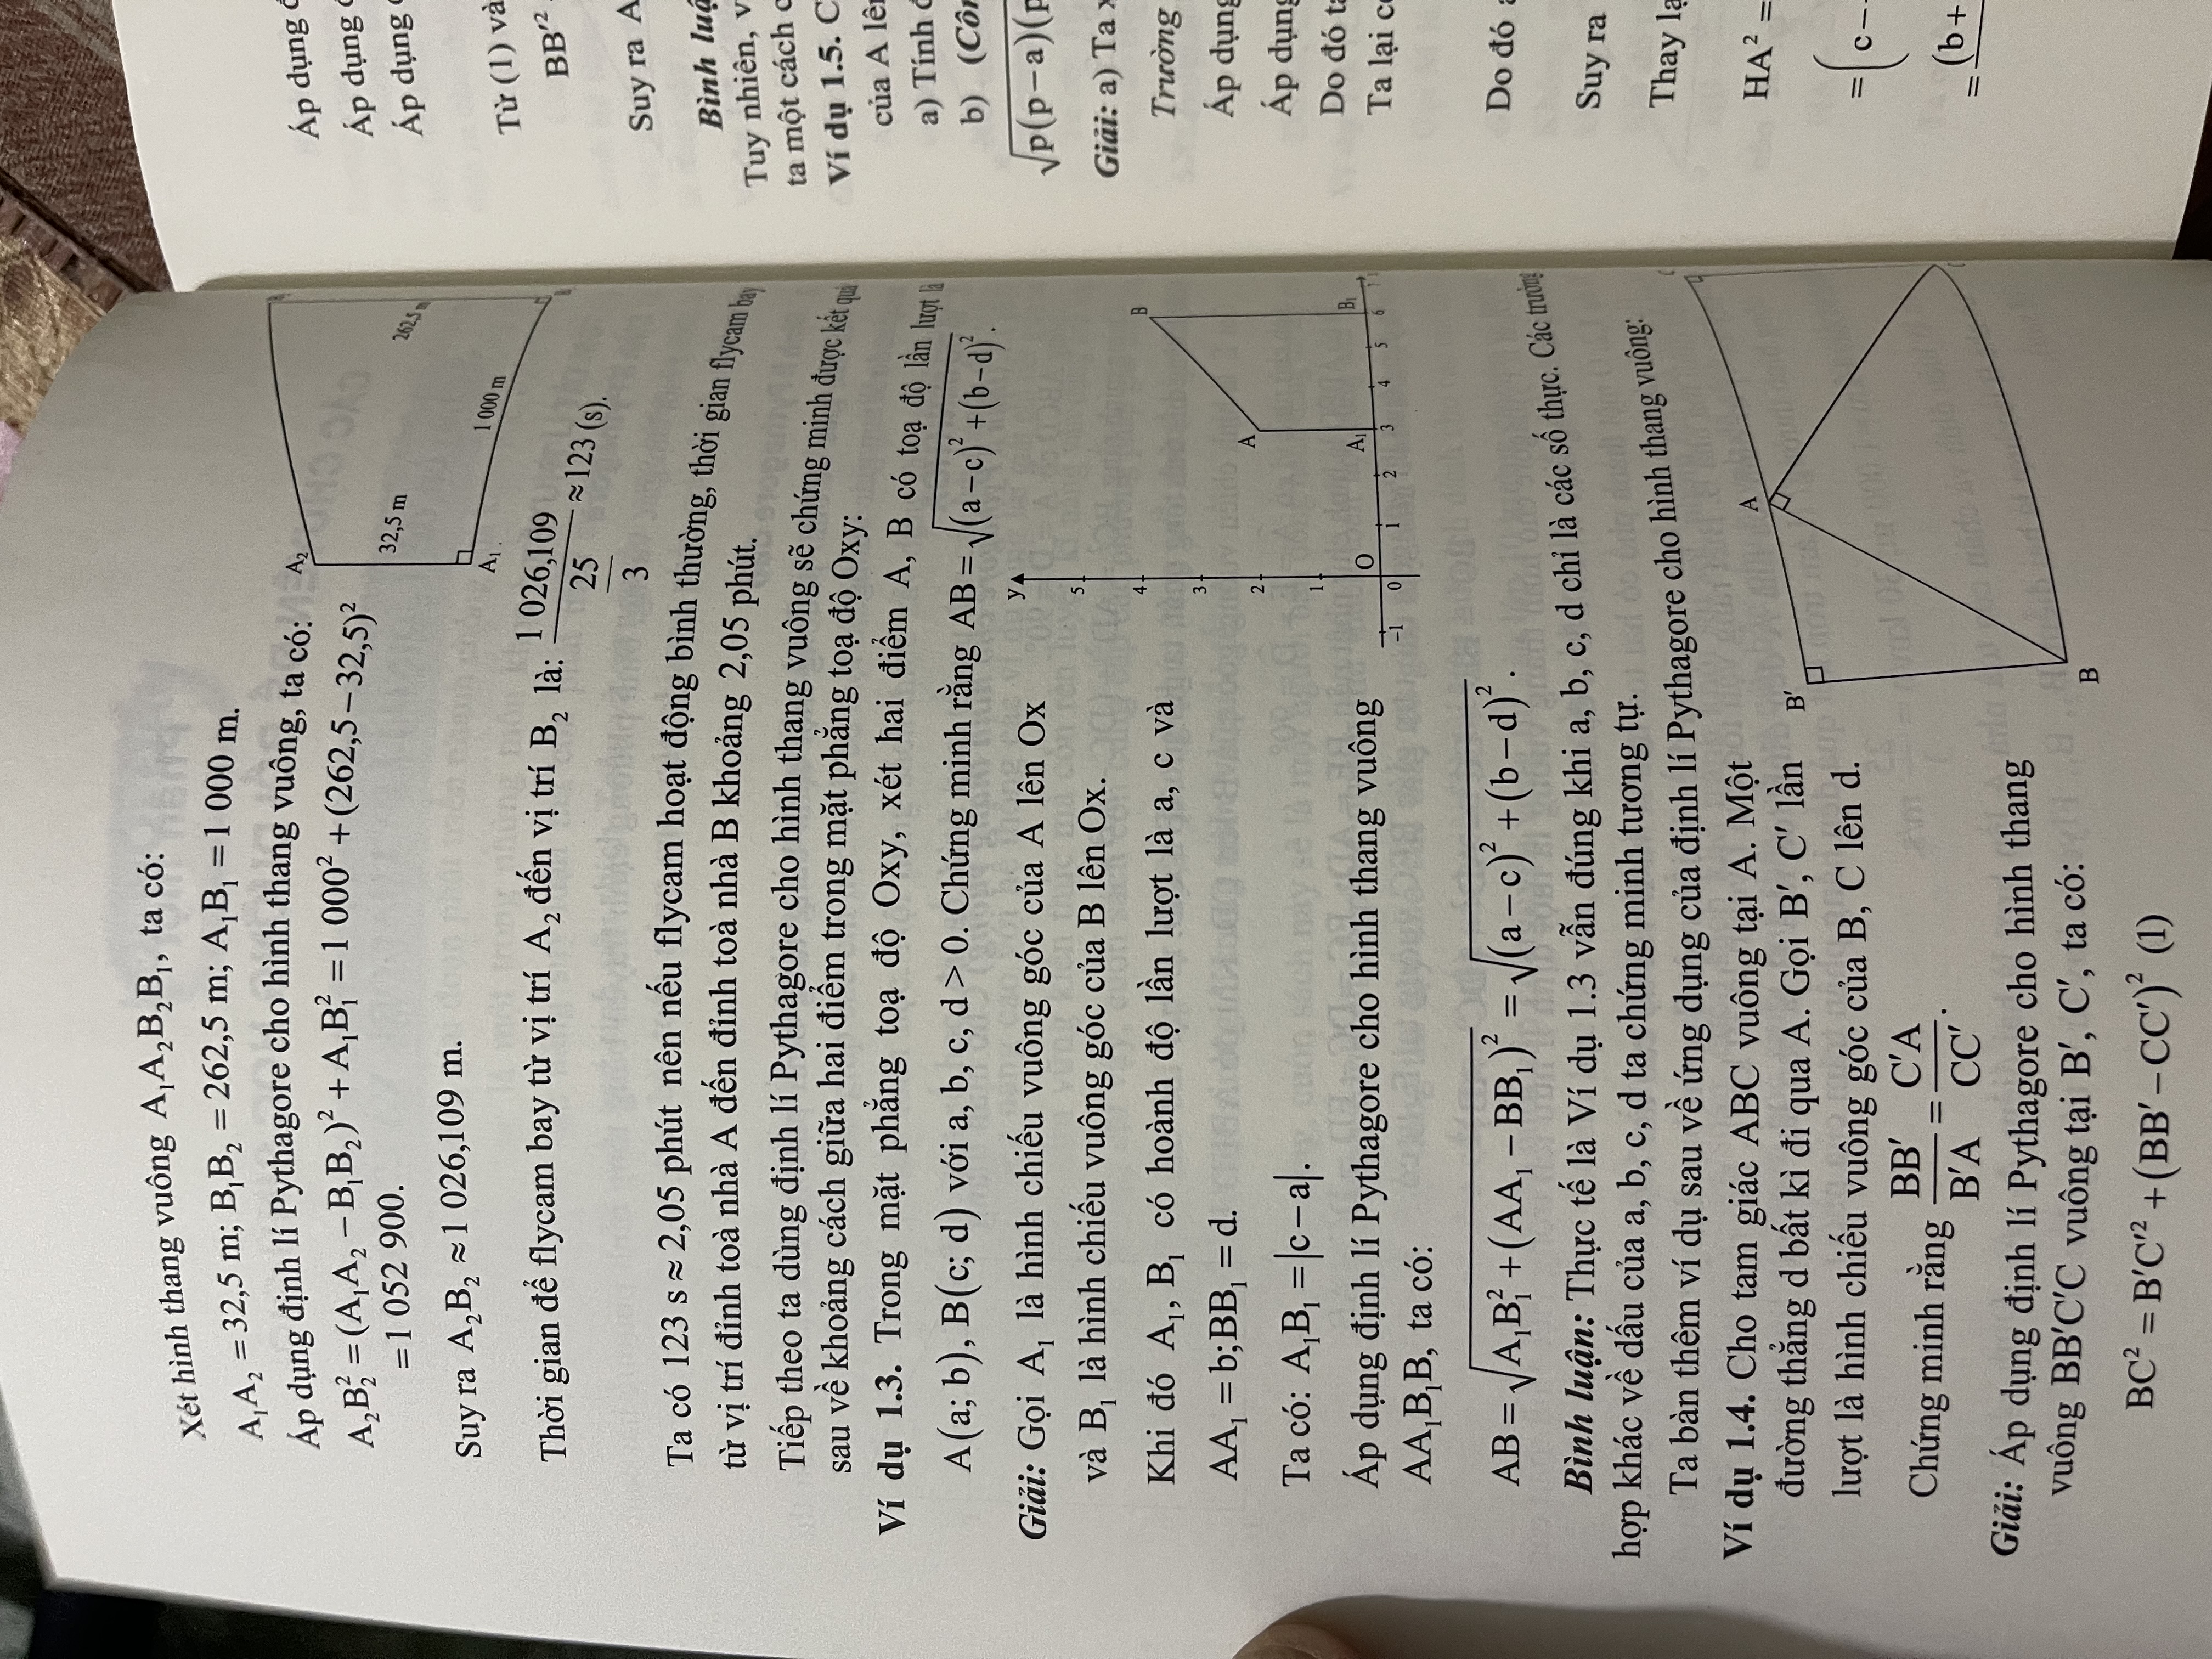 Xét hình thang vuông A₁A₂B₂B₁, ta có:
A₁A₂ = 32,5 m; B₁B₂ = 262,5 m; A₁B₁ = 1 000 m.
Áp dụng định lí Pythagore cho hình thang vuông, ta có:
A₂B₂² = (A₁A₂ − B₁B₂)² + A₁B₁² = 1 000² + (262,5 − 32,5)²
= 1 052 900.
A₂
32,5 m
262,5 m
1 000 m
A₁
Suy ra A₂B₂ ≈ 1 026,109 m.
Thời gian để flycam bay từ vị trí A₂ đến vị trí B₂ là: 1 026,109 / (25/3) ≈ 123 (s).
Ta có 123 s ≈ 2,05 phút nên nếu flycam hoạt động bình thường, thời gian flycam bay
từ vị trí đỉnh toà nhà A đến đỉnh toà nhà B khoảng 2,05 phút.
Tiếp theo ta dùng định lí Pythagore cho hình thang vuông sẽ chứng minh được kết quả
sau về khoảng cách giữa hai điểm trong mặt phẳng toạ độ Oxy:
Ví dụ 1.3. Trong mặt phẳng toạ độ Oxy, xét hai điểm A, B có toạ độ lần lượt là
A(a; b), B(c; d) với a, b, c, d > 0. Chứng minh rằng AB = √((a − c)² + (b − d)²).
Giải: Gọi A₁ là hình chiếu vuông góc của A lên Ox
và B₁ là hình chiếu vuông góc của B lên Ox.
Khi đó A₁, B₁ có hoành độ lần lượt là a, c và
AA₁ = b; BB₁ = d.
Ta có: A₁B₁ = |c − a|.
Áp dụng định lí Pythagore cho hình thang vuông
AA₁B₁B, ta có:
y
5
4
3
2
1
O
−1 0 1 2 3 4 5 6
A
B
A₁
B₁
AB = √(A₁B₁² + (AA₁ − BB₁)²) = √((a − c)² + (b − d)²).
Bình luận: Thực tế là Ví dụ 1.3 vẫn đúng khi a, b, c, d chỉ là các số thực. Các trường
hợp khác về dấu của a, b, c, d ta chứng minh tương tự.
Ta bàn thêm ví dụ sau về ứng dụng của định lí Pythagore cho hình thang vuông:
Ví dụ 1.4. Cho tam giác ABC vuông tại A. Một
đường thẳng d bất kì đi qua A. Gọi B′, C′ lần
lượt là hình chiếu vuông góc của B, C lên d.
Chứng minh rằng BB′/B′A = C′A/CC′.
B′
A
B
Giải: Áp dụng định lí Pythagore cho hình thang
vuông BB′C′C vuông tại B′, C′, ta có:
BC² = B′C′² + (BB′ − CC′)² (1)
Áp dụng
Áp dụng
Áp dụng
Từ (1) và
BB′²
Suy ra A
Bình luậ
Tuy nhiên, v
ta một cách c
Ví dụ 1.5. C
của A lên
a) Tính
b) (Côn
√p(p − a)(p
Giải: a) Ta x
Trường
Áp dụng
Áp dụng
Do đó ta
Ta lại c
Do đó a
Suy ra
Thay lạ
HA² =
= (c −
= (b +